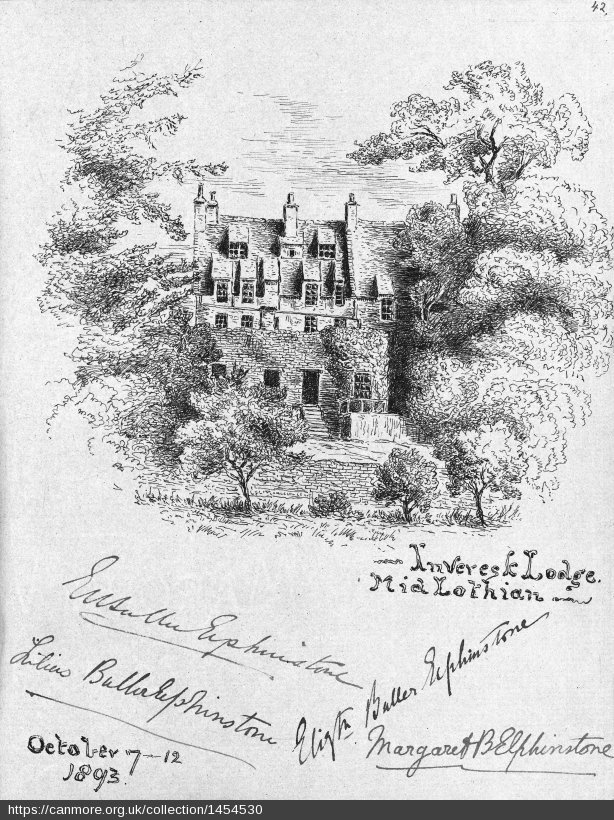 42.
Inveresk Lodge.
Mid Lothian
Elphinstone
Lilias Buller Elphinstone
Eligth. Buller Elphinstone
Margaret B Elphinstone
October 7-12
1893.
https://canmore.org.uk/collection/1454530